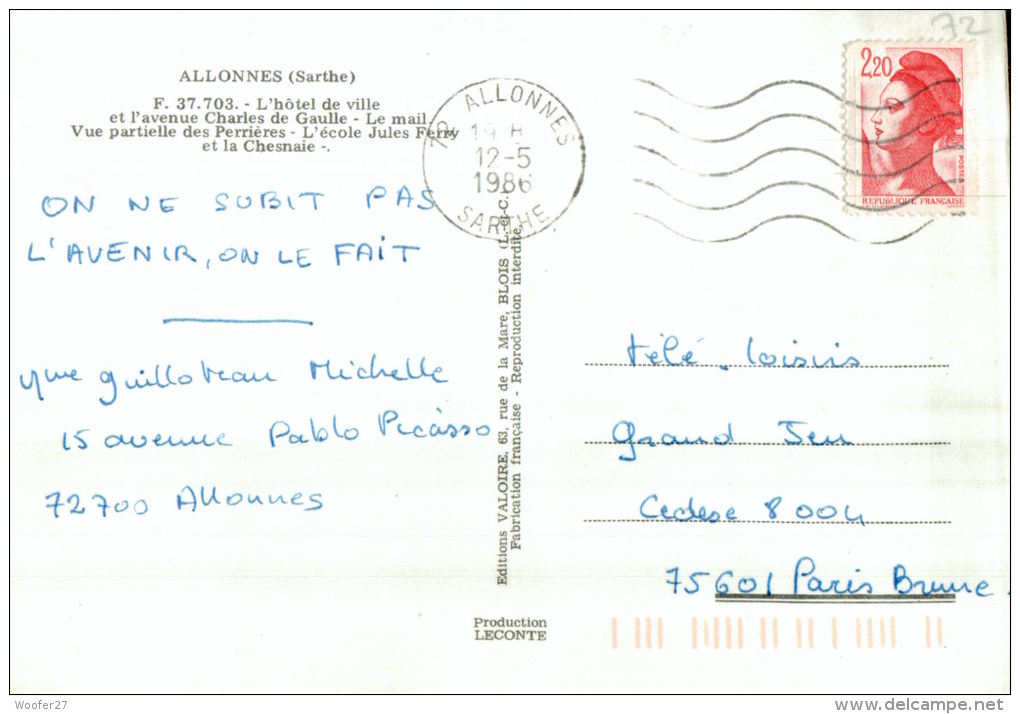 72
ALLONNES (Sarthe)
F. 37.703. - L'hôtel de ville
et l'avenue Charles de Gaulle - Le mail
Vue partielle des Perrières - L'école Jules Ferry
et la Chesnaie -.
72 ALLONNES
19 H
12-5
1986
SARTHE
2,20
POSTES
REPUBLIQUE FRANCAISE
ON NE SUBIT PAS
L'AVENIR, ON LE FAIT
Mme Guilloteau Michelle
15 avenue Pablo Picasso
72700 Allonnes
Editions VALOIRE, 63, rue de la Mare, BLOIS (L.-et-C.)
Fabrication française - Reproduction interdite.
télé-loisirs
Grand Jeu
Cedex 8004
75601 Paris Brune
Production
LECONTE
Woofer27
delcampe.net